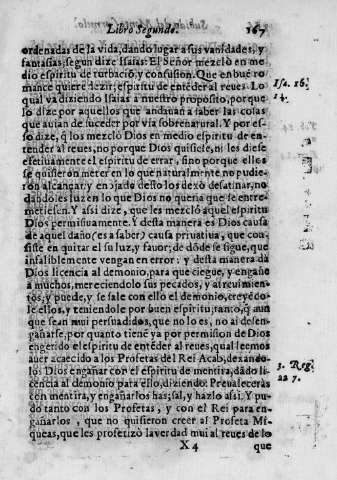 Libro Segundo. 167
ordenadas de la vida, dando lugar a sus vanidades, y
fantasias, segun dize Isaias: El Señor mezclò en me
dio espiritu de turbaciõ, y confusion. Que en buẽ ro
mance quiere dezir, espiritu de entẽder al reues. Lo
qual va diziendo Isaias a nuestro proposito, porque
lo dize por aquellos que andauan a saber las cosas
que auian de suceder por via sobrenatural. Y por es-
so dize, q̃ los mezclò Dios en medio espiritu de en-
tender al reues, no porque Dios quisiese, ni les diese
efetiuamente el espiritu de errar, sino porque ellos
se quisieron meter en lo que naturalmente no pudie-
ron alcançar, y enojado desto los dexò desatinar, no
dandoles luz en lo que Dios no queria que se entre-
metiesen. Y assi dize, que les mezclò aquel espiritu
Dios permisiuamente. Y desta manera es Dios causa
de aquel daño (es a saber) causa priuatiua, que con-
siste en quitar el su luz, y fauor; de dõde se sigue, que
infaliblemente vengan en error: y desta manera dà
Dios licencia al demonio, para que ciegue, y engañe
a muchos, mereciendolo sus pecados, y atreuimien-
tos, y puede, y se sale con ello el demonio, creyẽdo-
le ellos, y teniendole por buen espiritu, tanto, q̃ aun
que sean mui persuadidos, que no lo es, no ai desen-
gañarse, por quanto tienẽ ya por permision de Dios
engerido el espiritu de entẽder al reues, qual leemos
auer acaecido a los Profetas del Rei Acab, dexando-
los Dios engañar con el espiritu de mentira, dãdo li-
cencia al demonio para ello, diziendo: Preualeceràs
con mentira, y engañarlos has; sal, y hazlo assi. Y pu-
do tanto con los Profetas, y con el Rei para en-
gañarlos, que no quisieron creer al Profeta Mi-
queas, que les profetizò la verdad mui al reues de lo
X 4 que
Isa. 16.
14.
3. Reg.
22 7.